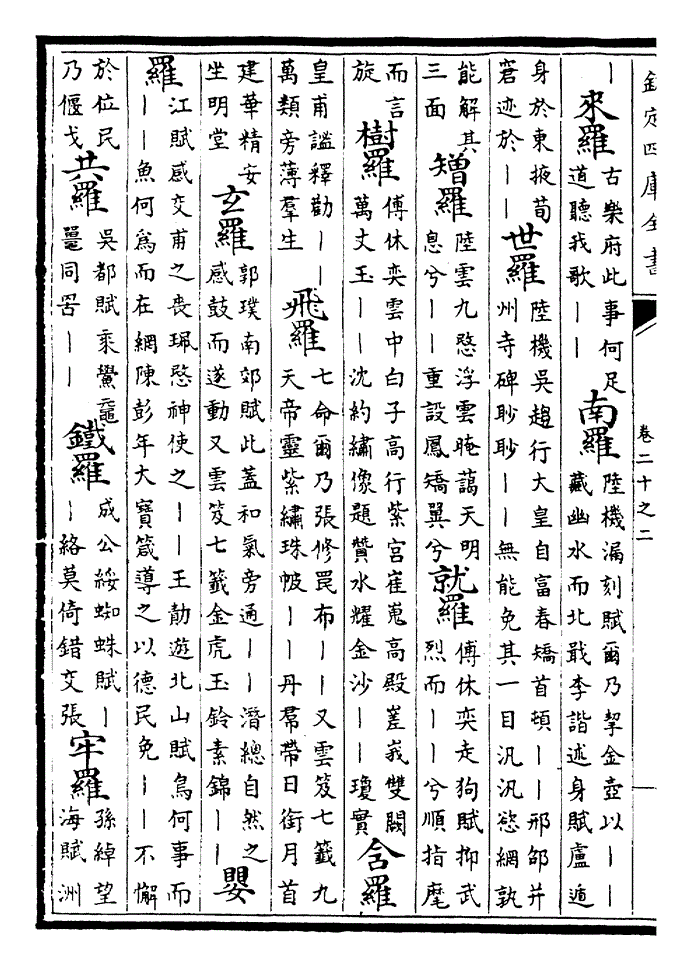 欽定四庫全書 卷二十之二
｜ 來羅 古樂府此事何足道聽我歌｜｜ 南羅 陸機漏刻賦爾乃挈金壺以｜｜藏幽水而北戢李諧述身賦盧遁
身於東掖荀窘迹於｜｜ 世羅 陸機吳趨行大皇自富春矯首頓｜｜邢邵并州寺碑眇眇｜｜無能免其一目汎汎慾網孰
能解其三面 矰羅 陸雲九愍浮雲晻藹天明息兮｜｜重設鳳矯翼兮 就羅 傅休奕走狗賦抑武烈而｜｜兮順指麾
而言旋 樹羅 傅休奕雲中白子高行紫宮崔嵬高殿嵳峩雙闕萬丈玉｜｜沈約繡像題贊水耀金沙｜｜瓊實 含羅
皇甫謐釋勸｜｜萬類旁薄羣生 飛羅 七命爾乃張修罠布｜｜又雲笈七籤九天帝靈紫繡珠帔｜｜丹帬帶日銜月首
建華精安坐明堂 玄羅 郭璞南郊賦此蓋和氣旁通｜｜潛總自然之感鼓而遂動又雲笈七籤金虎玉鈴素錦｜｜ 嬰
羅 江賦感交甫之喪珮愍神使之｜｜王勣遊北山賦鳥何事而｜｜魚何為而在網陳彭年大寶箴導之以德民免｜｜不懈
於位民乃偃戈 共羅 吳都賦乘鱟黿鼉同罛｜｜ 鐵羅 成公綏蜘蛛賦｜｜絡莫倚錯交張 牢羅 孫綽望海賦洲